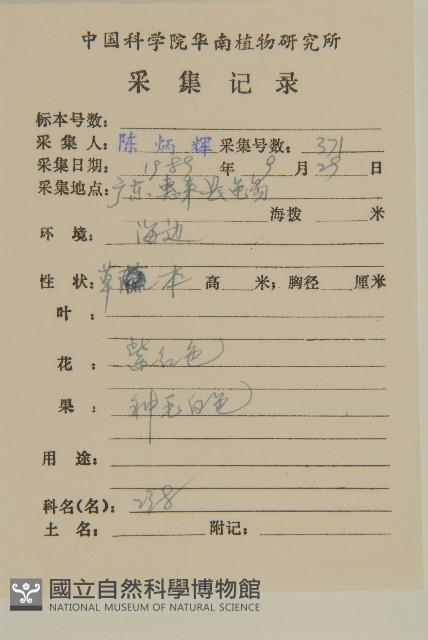 中国科学院华南植物研究所
采集记录
标本号数:
采集人: 陈炳辉 采集号数: 371
采集日期: 1989 年 9 月 29 日
采集地点: 广东惠来县
海拨 米
环境: 海边
性状: 草本 高 米; 胸径 厘米
叶:
花: 紫红色
果: 种毛白色
用途:
科名(名): 238
土名: 附记:
國立自然科學博物館
NATIONAL MUSEUM OF NATURAL SCIENCE